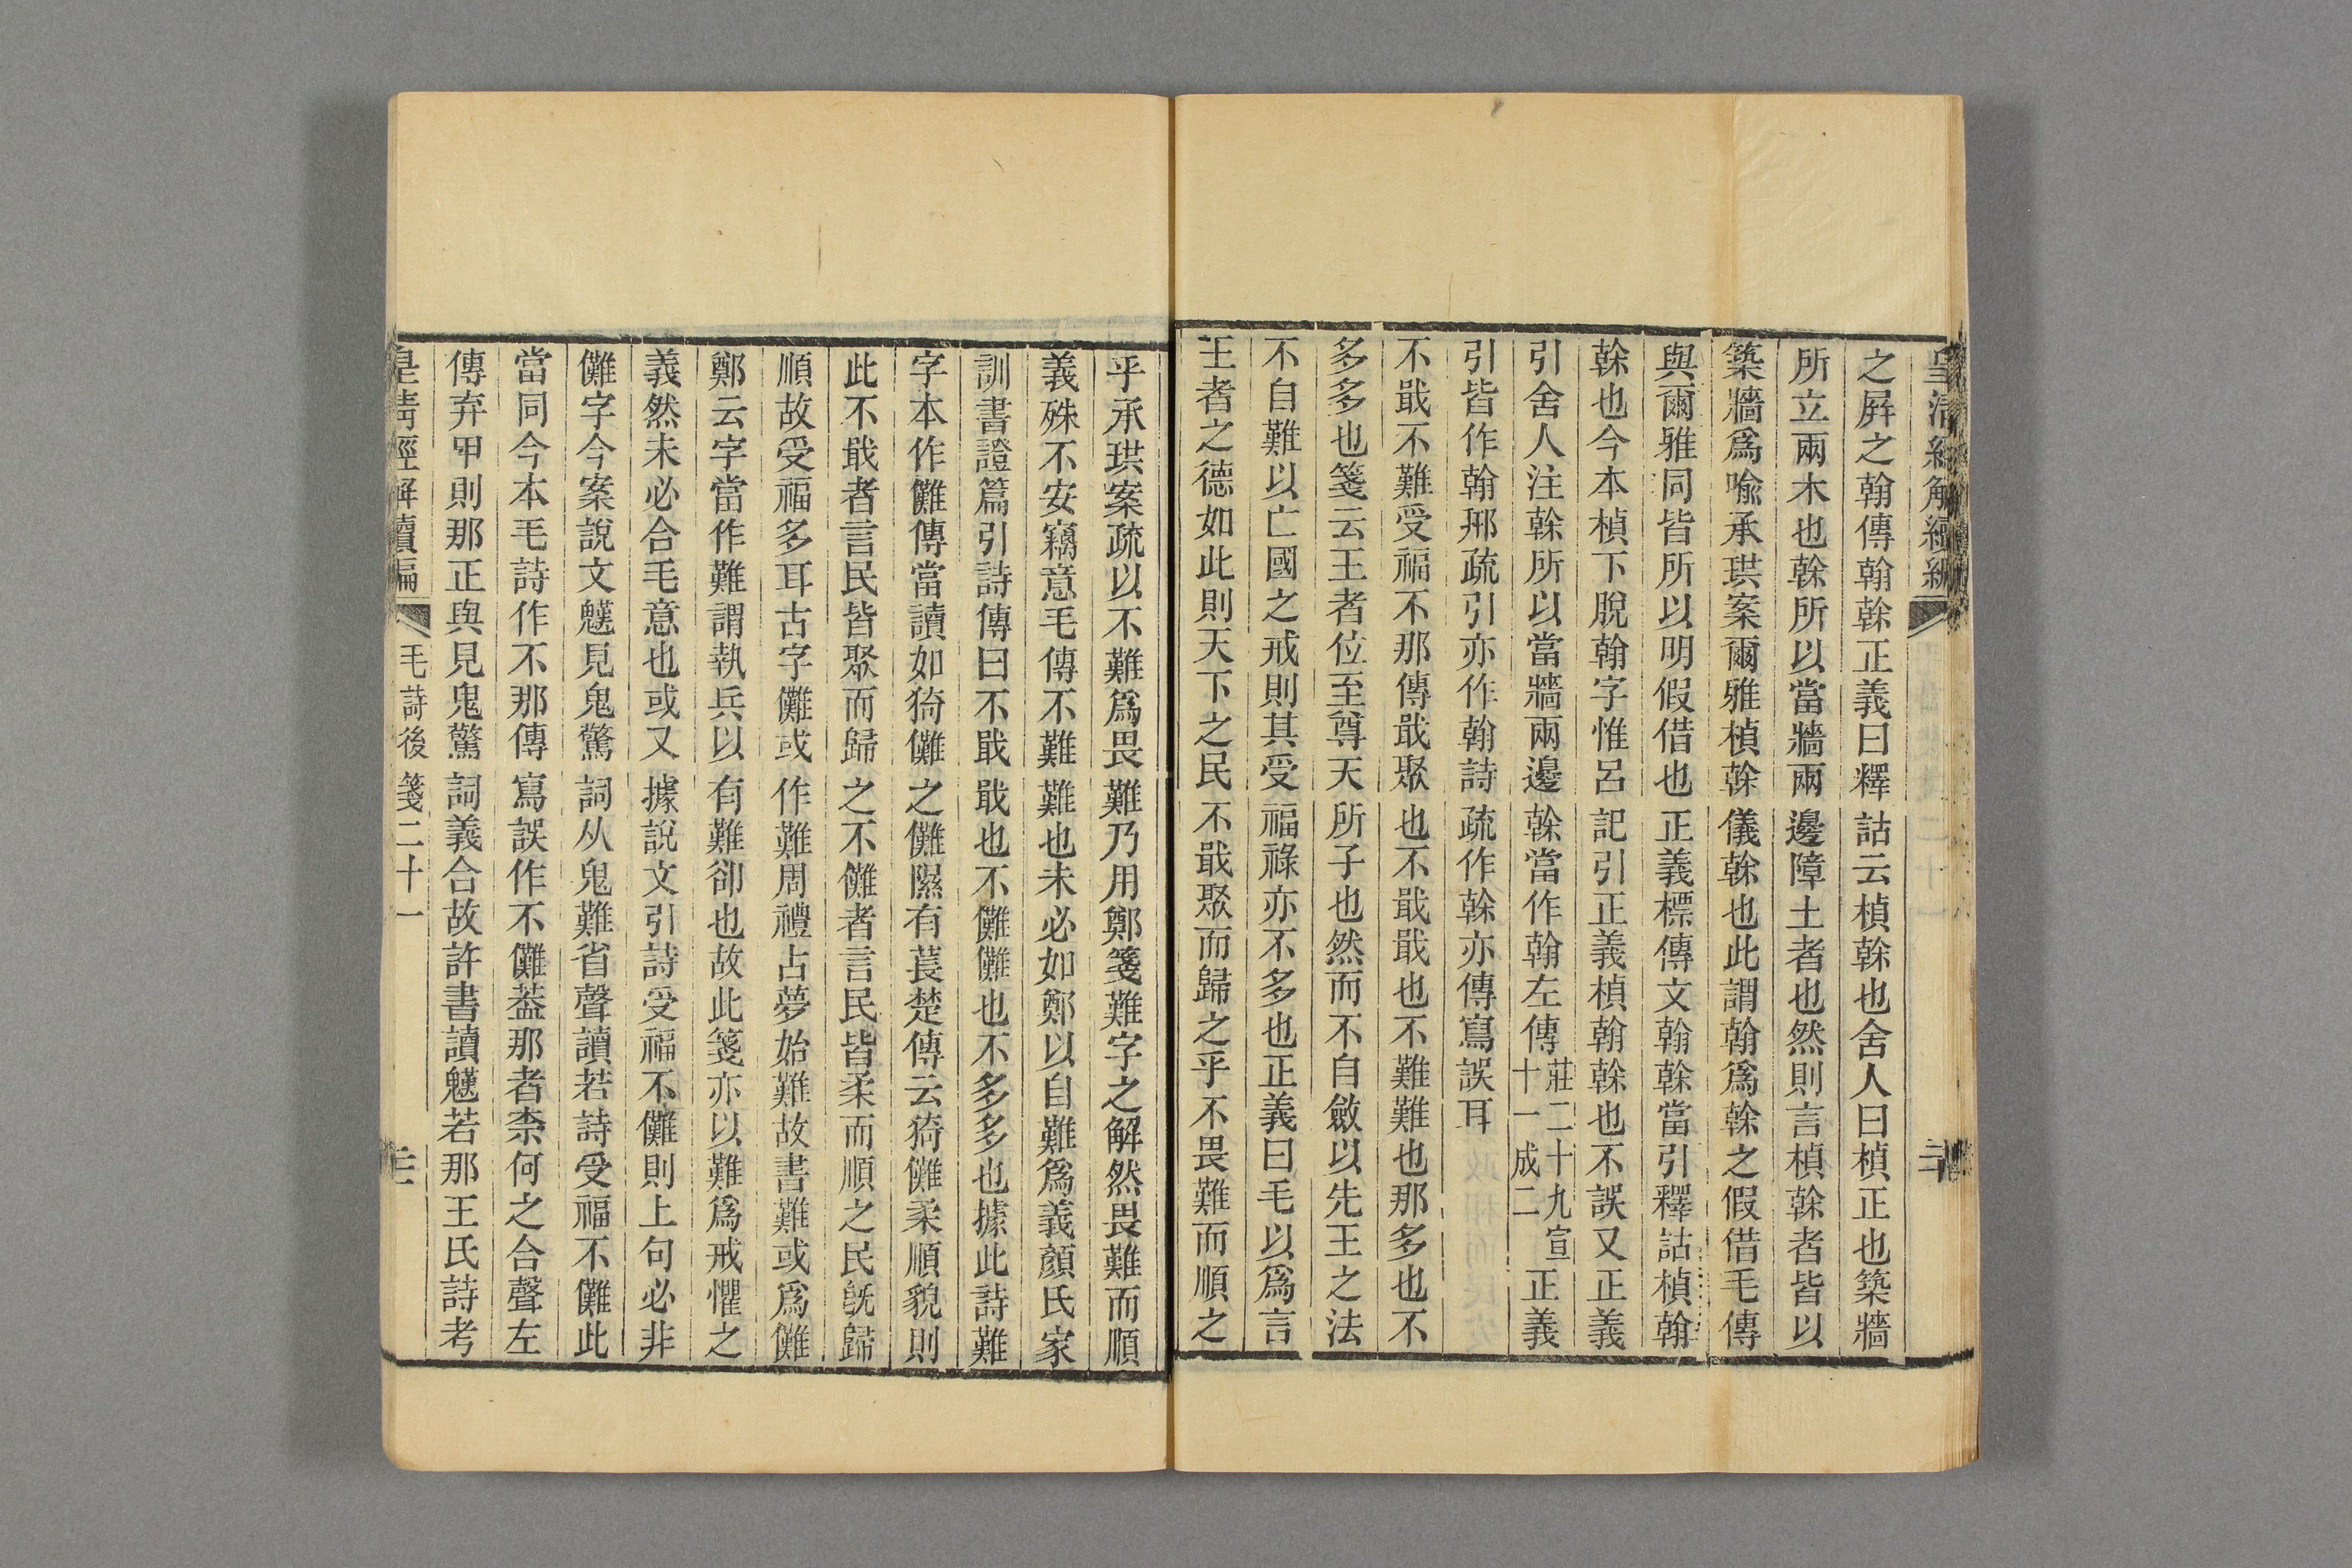 皇清經解續編
之屛之翰傳翰榦正義曰釋詁云楨榦也舍人曰楨正也築牆
所立兩木也榦所以當牆兩邊障土者也然則言楨榦者皆以
築牆爲喩承珙案爾雅楨榦儀榦也此謂翰爲榦之假借毛傳
與爾雅同皆所以明假借也正義標傳文翰榦當引釋詁楨翰
榦也今本楨下脫翰字惟呂記引正義楨翰榦也不誤又正義
引舍人注榦所以當牆兩邊榦當作翰左傳莊二十九宣十一成二正義
引皆作翰邢疏引亦作翰詩疏作榦亦傳寫誤耳
不戢不難受福不那傳戢聚也不戢戢也不難難也那多也不
多多也箋云王者位至尊天所子也然而不自斂以先王之法
不自難以亡國之戒則其受福祿亦不多也正義曰毛以爲言
王者之德如此則天下之民不戢聚而歸之乎不畏難而順之
乎承珙案疏以不難爲畏難乃用鄭箋難字之解然畏難而順
義殊不安竊意毛傳不難難也未必如鄭以自難爲義顏氏家
訓書證篇引詩傳曰不戢戢也不儺儺也不多多也據此詩難
字本作儺傳當讀如猗儺之儺隰有萇楚傳云猗儺柔順貌則
此不戢者言民皆聚而歸之不儺者言民皆柔而順之民旣歸
順故受福多耳古字儺或作難周禮占夢始難故書難或爲儺
鄭云字當作難謂執兵以有難卻也故此箋亦以難爲戒懼之
義然未必合毛意也或又據說文引詩受福不儺則上句必非
儺字今案說文魌見鬼驚詞从鬼難省聲讀若詩受福不儺此
當同今本毛詩作不那傳寫誤作不儺葢那者柰何之合聲左
傳弃甲則那正與見鬼驚詞義合故許書讀魌若那王氏詩考
皇淸經解續編 毛詩後箋二十一 三